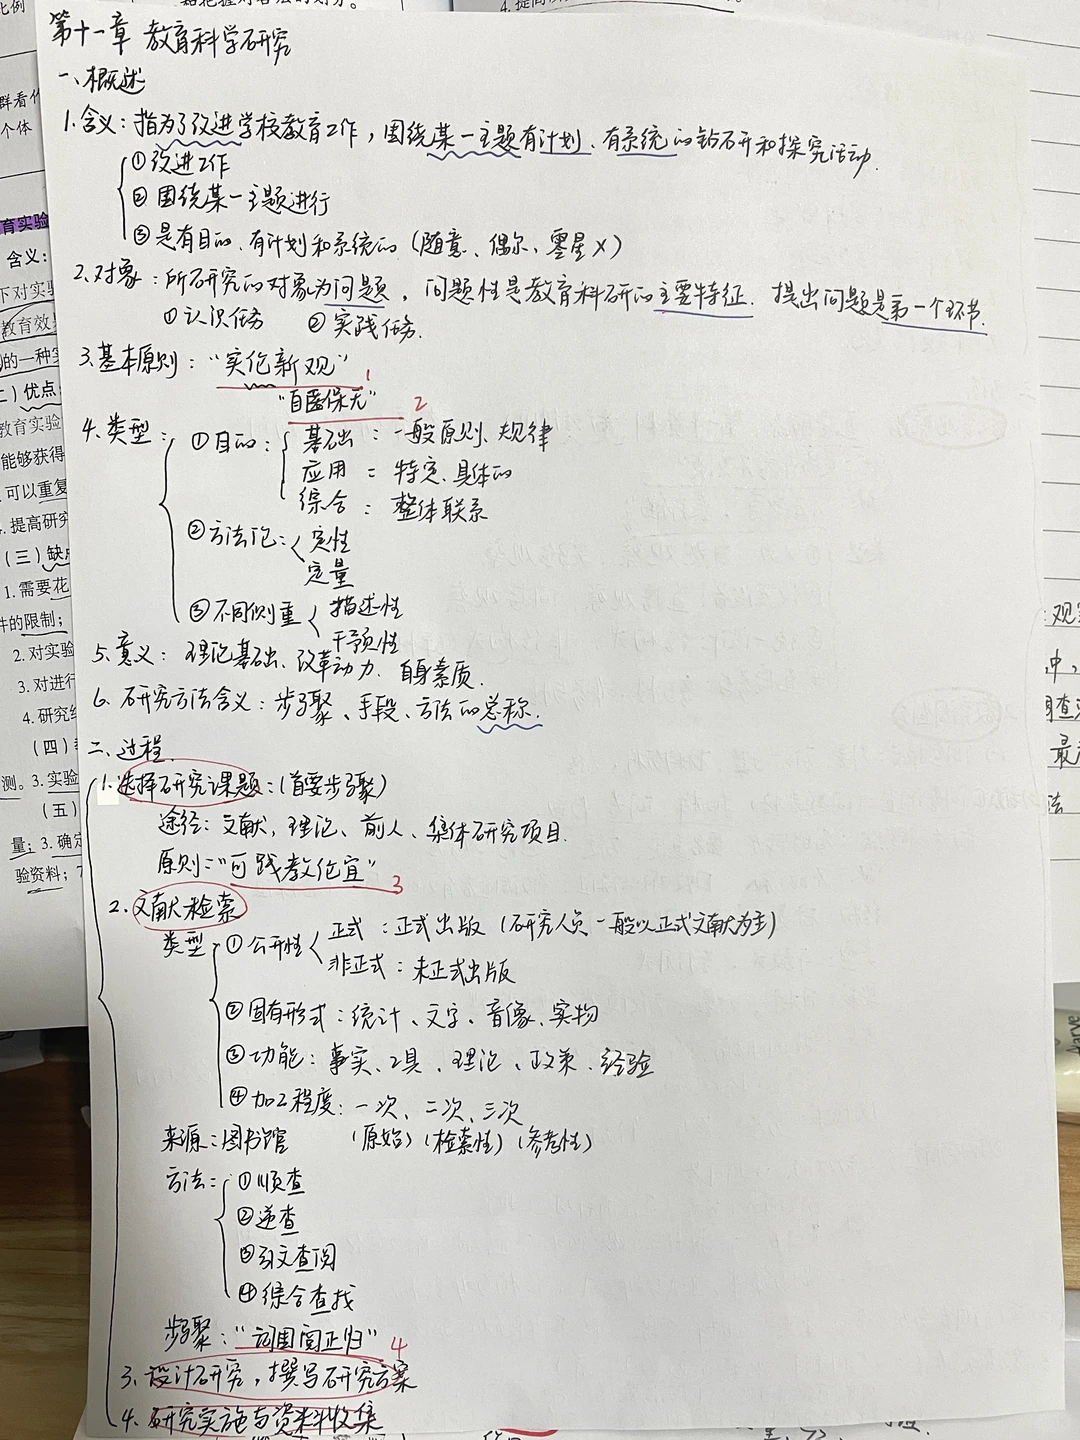 第十一章 教育科学研究
一、概述
1.含义：指为了改进学校教育工作，围绕某一主题有计划、有系统的钻研和探究活动.
①改进工作
②围绕某一主题进行
③是有目的、有计划和系统的（随意、偶尔、零星×）
2.对象：所研究的对象为问题，问题性是教育科研的主要特征. 提出问题是第一个环节.
①认识任务 ②实践任务.
3.基本原则：“实伦新观” 1
“自医保无” 2
4.类型：①目的：基础：一般原则、规律
应用：特定、具体的
综合：整体联系
②方法论：定性
定量
③不同侧重 描述性
干预性
5.意义：理论基础、改革动力、自身素质.
6.研究方法含义：步骤、手段、方法的总称.
二、过程.
1.选择研究课题：（首要步骤）
途径：文献、理论、前人、集体研究项目.
原则：“可践教伦宜” 3
2.文献检索
类型 ①公开性 正式：正式出版（研究人员一般以正式文献为主）
非正式：未正式出版
②固有形式：统计、文字、音像、实物
③功能：事实、工具、理论、政策、经验
④加工程度：一次、二次、三次
来源：图书馆 （原始）（检索性）（参考性）
方法：①顺查
②逆查
③引文查阅
④综合查找
步骤：“词围阅正归” 4
3.设计研究，撰写研究方案
4.研究实施与资料收集
比例
4.提高
群看作
个体
育实验
含义：
下对实验
教育效果
的一种实
二）优点
教育实验
能够获得
可以重复
提高研究
（三）缺点
1.需要花
件的限制；
2.对实验
3.对进行
4.研究结
（四）
测。3.实验
（五）
量；3.确定
验资料；
观察
中，
调查
最
法